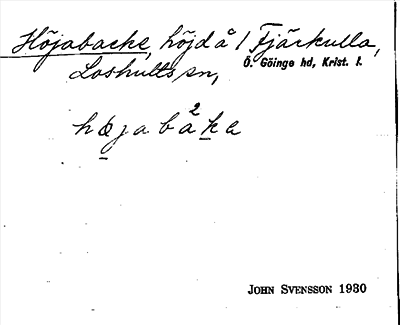 Höjabacke, höjd å / Fjärkulla,
Ö. Göinge hd, Krist. l.
Loshults sn,
höjabå²ka
JOHN SVENSSON 1930